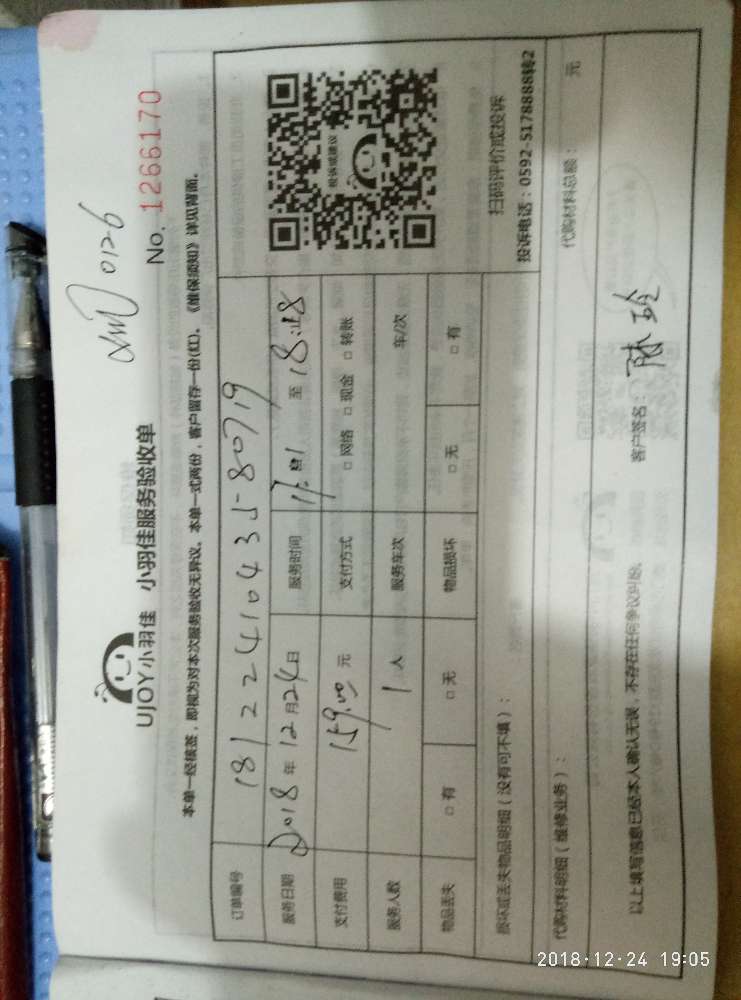 UJOY小羽佳 小羽佳服务验收单
No. 1266170
012-6
本单一经核签，即视为对本次服务验收无异议。本单一式两份，客户留存一份(红)。《维保须知》详见背面。
订单编号
服务日期 2018年12月24日 服务时间 至
支付费用 159.00元 支付方式 □ 网络 □ 现金 □ 转账
服务人数 1人 服务车次 车/次
物品丢失 □ 有 □ 无 物品损坏 □ 无 □ 有
投诉或建议
扫码评价或投诉
投诉电话：0592-5178888转2
损坏或丢失物品明细（没有可不填）：
代购材料明细（维修业务）： 代购材料总额： 元
以上填写信息已经本人确认无误，不存在任何争议纠纷。 客户签名：
2018-12-24 19:05